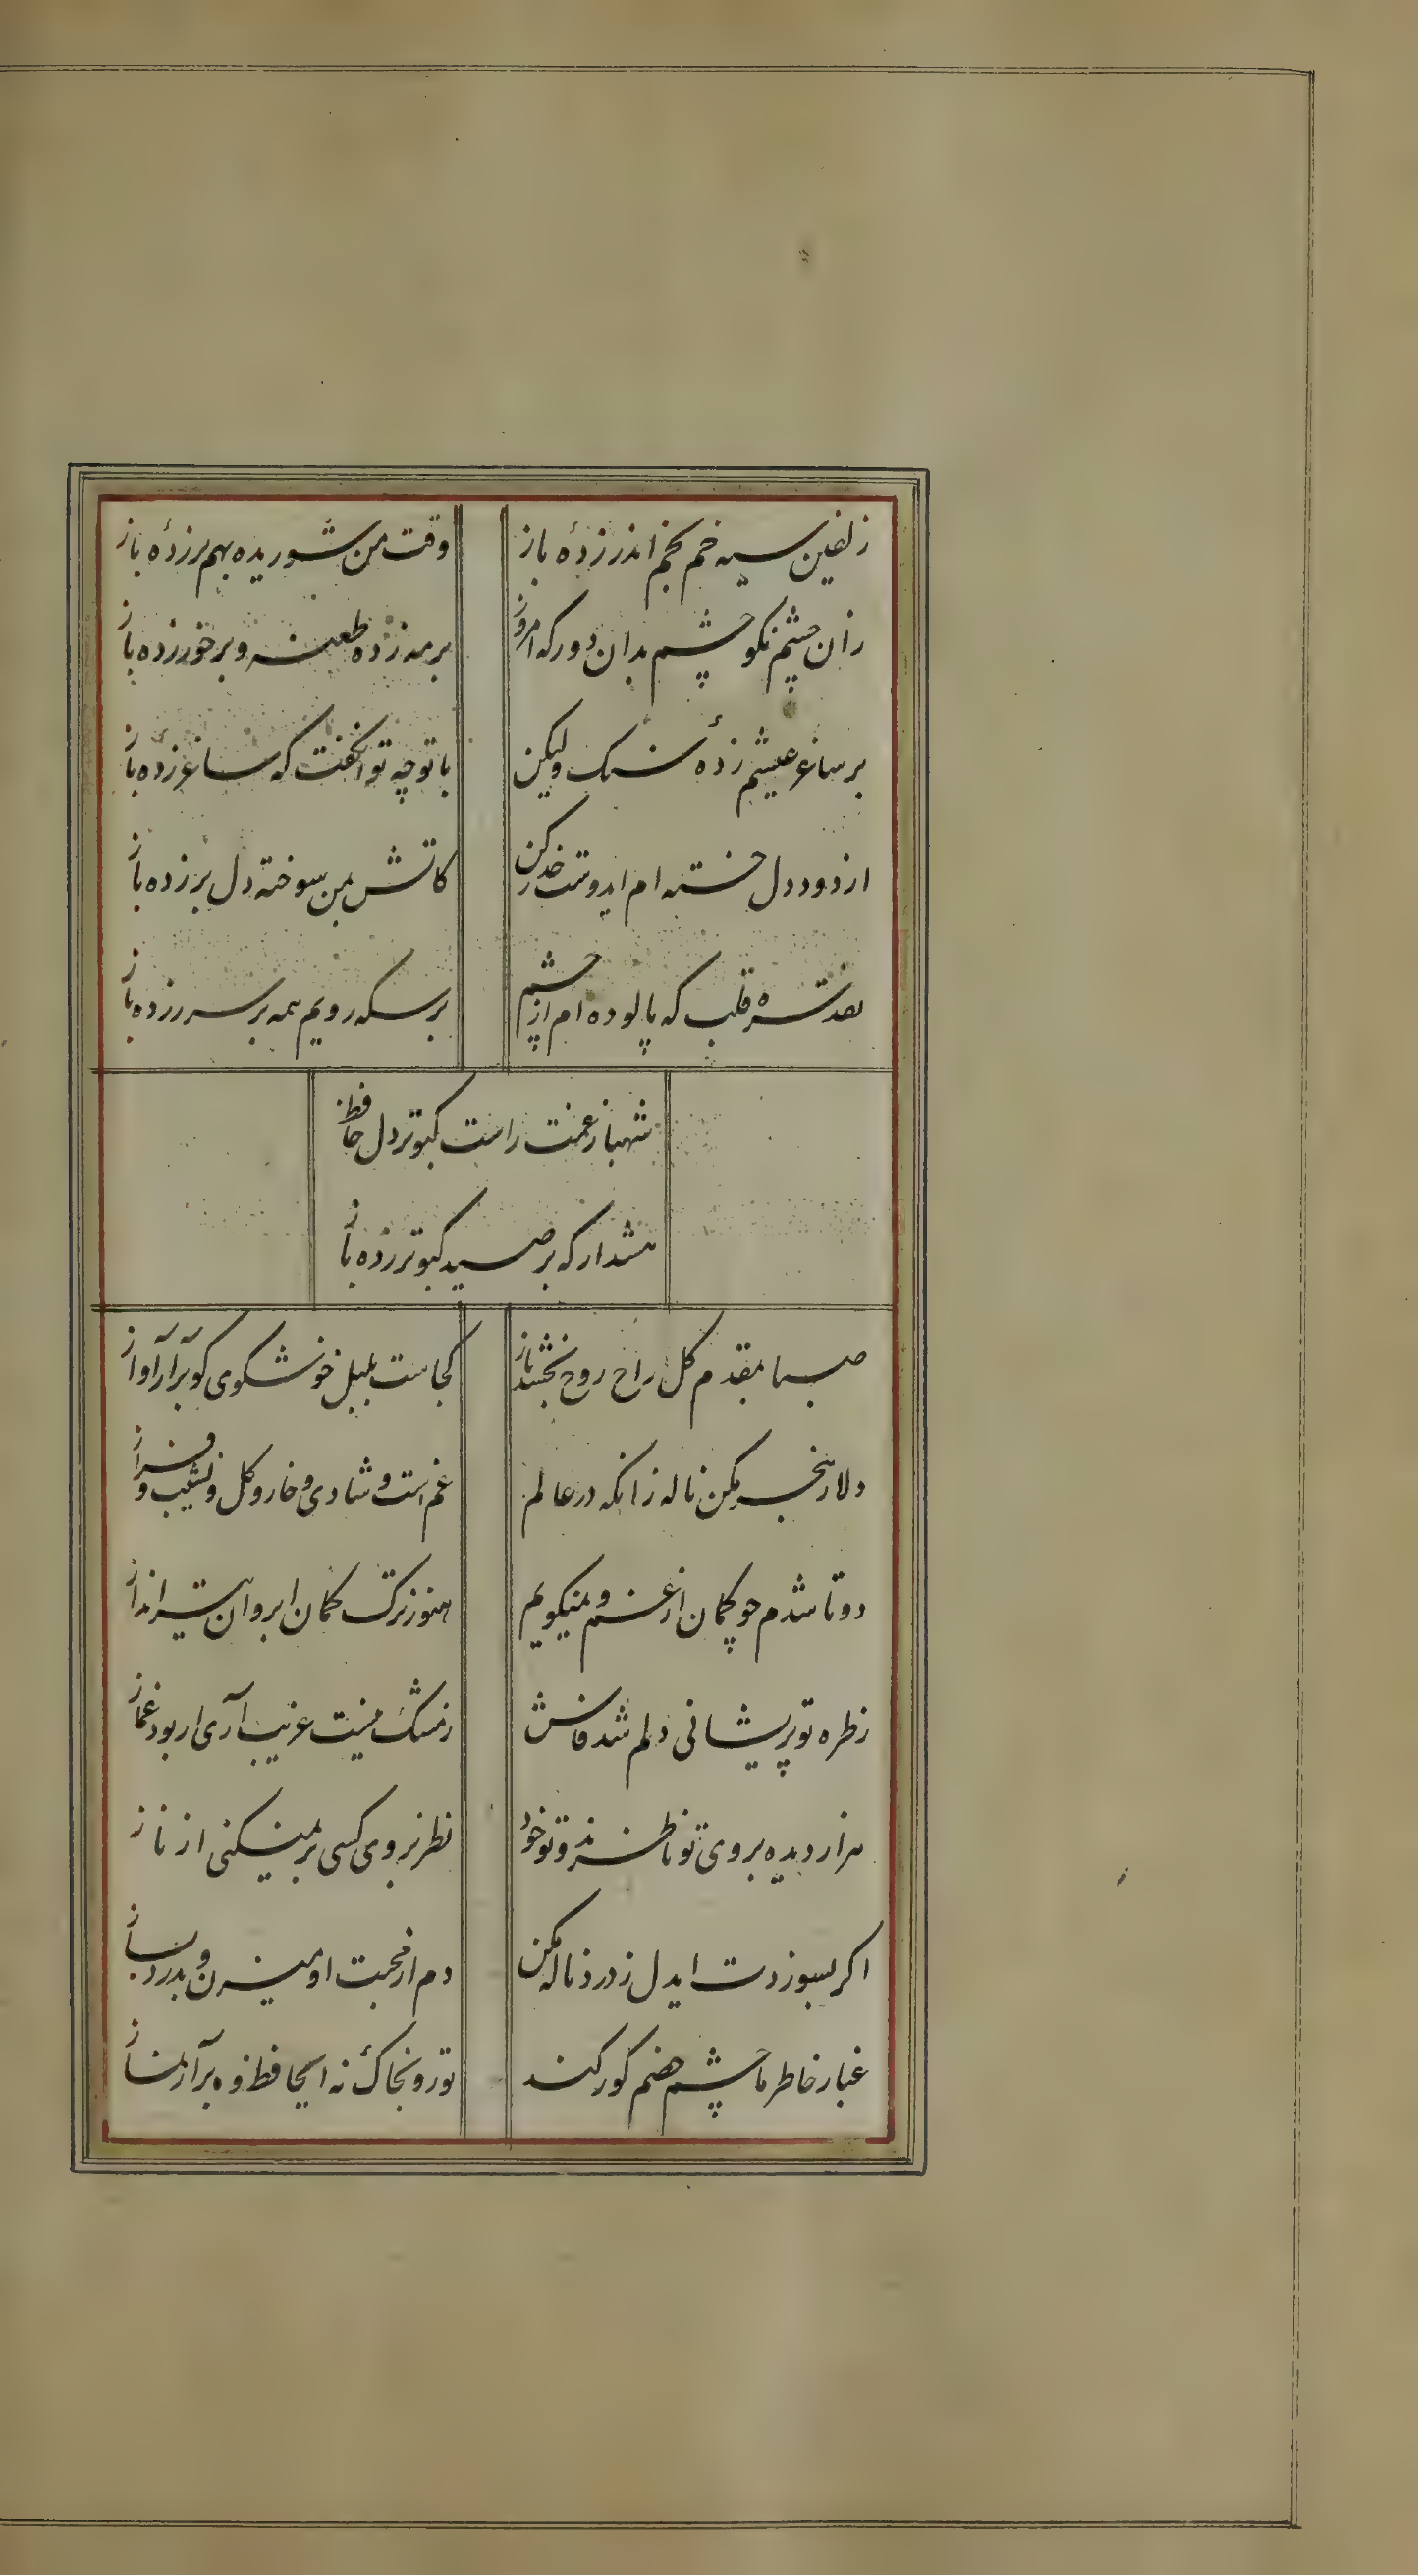 زلفین سیه خم بخم اندر زدهٔ باز
وقت من شوریده بهم برزدهٔ باز
زان چشم نکو چشم بدان دور که امروز
بر مه زده طعنه و بر خور زده باز
بر ساغر عیشم زدهٔ سنک ولیکن
با تو چه توان کفت که ساغر زده باز
از دود دل خسته ام ایدوست حذر کن
کاتش بمن سوخته دل بر زده باز
نقد سره قلب که پالوده ام از چشم
بر سکه رویم همه بر سر زده باز
شهباز غمت راست کبوتر دل حافظ
هشدار که بر صید کبوتر زده باز
صبا بمقدم کل راح روح بخشد باز
کجاست بلبل خوشکوی کو برآر آواز
دلا ز هجر مکن ناله زانکه در عالم
غم است و شادی و خار و کل و نشیب و فراز
دوتا شدم چو کمان از غم و نمیکویم
هنوز ترک کمان ابروان تیرانداز
ز طره تو پریشانی دلم شد فاش
ز مشک نیست غریب آری ار بود غماز
هزار دیده بروی تو ناظرند و تو خود
نظر بروی کسی بر نمیکنی از ناز
اکر بسوزدت ایدل ز درد ناله مکن
دم از محبت او میزن و بدرد بساز
غبار خاطر ما چشم خصم کور کند
تو رو بخاک نه ای حافظ و برآر نماز